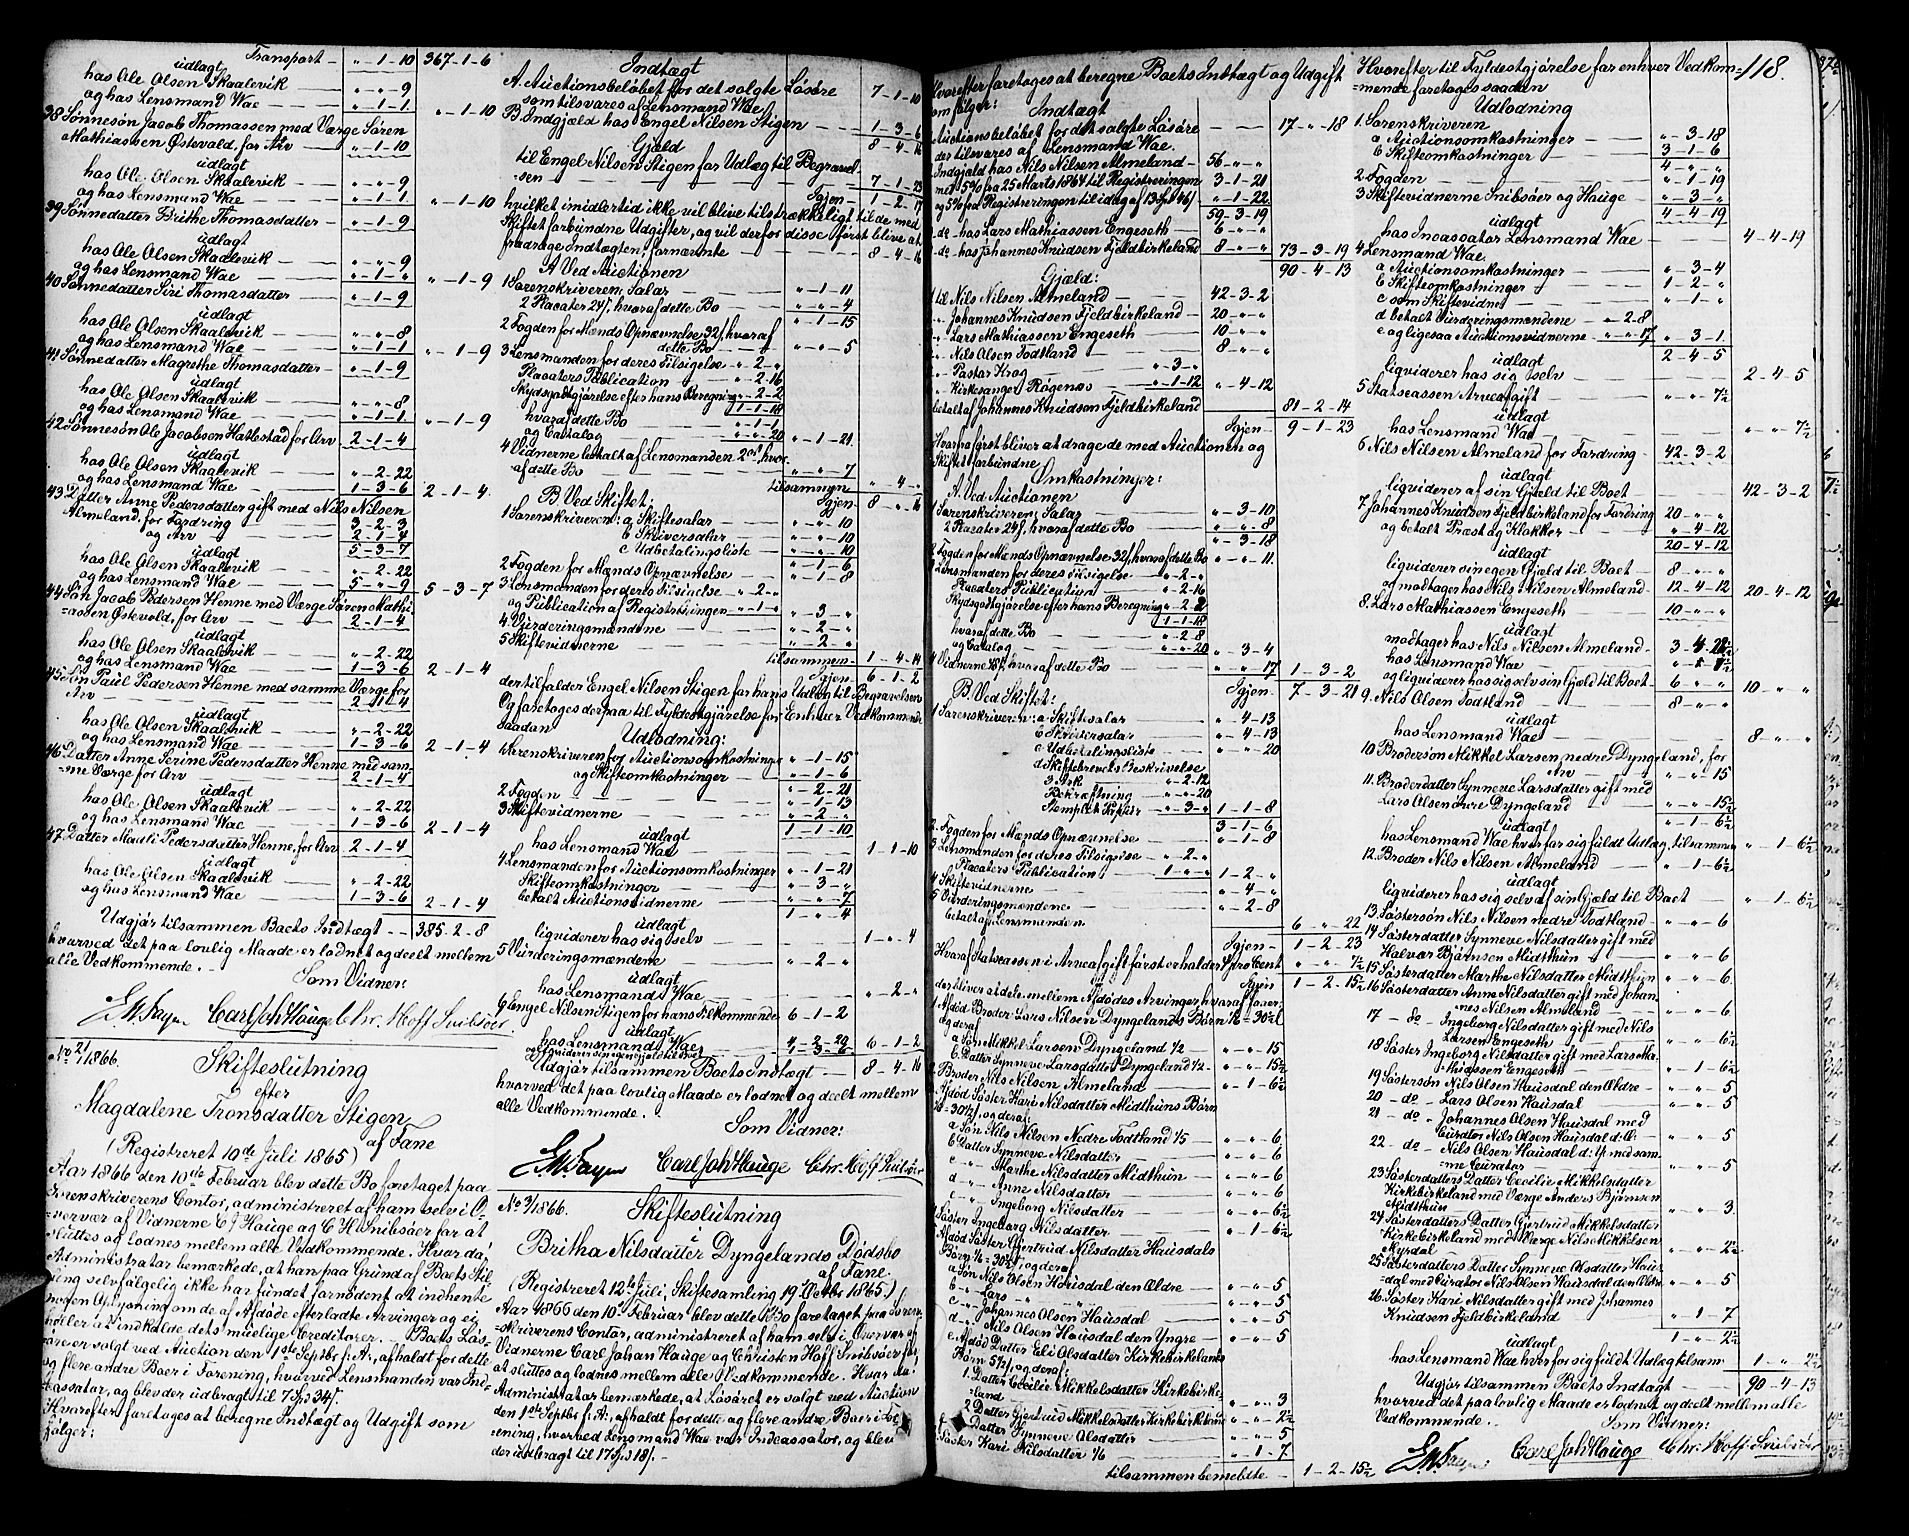 Transport - " - 1 - 10 367 - 1 - 6
udlagt
hos Ole Olsen Skaalevik " - " - 9
og hos Lensmand Wae " - 1 - 1 " - 1 - 10
38 Sønnesøn Jacob Thomassen med Værge Søren
Mathiassen Østevold, for Arv " - 1 - 10
udlagt
hos Ole Olsen Skaalevik " - " - 9
og hos Lensmand Wae " - 1 - 1 " - 1 - 10
39 Sønnedatter Brithe Thomasdatter " - 1 - 9
udlagt
hos Ole Olsen Skaalevik " - " - 9
og hos Lensmand Wae " - 1 - " " - 1 - 9
40 Sønnedatter Siri Thomasdatter " - 1 - 9
udlagt
hos Ole Olsen Skaalevik " - " - 8
og hos Lensmand Wae " - 1 - 1 " - 1 - 9
41 Sønnedatter Magrethe Thomasdatter " - 1 - 9
udlagt
hos Ole Olsen Skaalevik " - " - 8
og hos Lensmand Wae " - 1 - 1 " - 1 - 9
42 Sønnesøn Ole Jacobsen Hatlestad for Arv 2 - 1 - 4
udlagt
hos Ole Olsen Skaalevik " - 2 - 22
og hos Lensmand Wae 1 - 3 - 6 2 - 1 - 4
43 Datter Anne Pedersdatter gift med Nils Nilsen
Almeland, for Fordring 3 - 2 - 3
og Arv 2 - 1 - 4
udlagt 5 - 3 - 7
hos Ole Olsen Skaalevik " - 2 - 22
og hos Lensmand Wae 5 - " - 9 5 - 3 - 7
44 Søn Jacob Pedersen Henne med Værge Søren Mathi-
=assen Østevold, for Arv 2 - 1 - 4
udlagt
hos Ole Olsen Skaalevik " - 2 - 22
og hos Lensmand Wae 1 - 3 - 6 2 - 1 - 4
45 Søn Paul Pedersen Henne med samme Værge for
Arv 2 - 1 - 4
udlagt
hos Ole Olsen Skaalevik " - 2 - 22
og hos Lensmand Wae 1 - 3 - 6 2 - 1 - 4
46 Datter Anne Serine Pedersdatter Henne med sam-
=me Værge for Arv 2 - 1 - 4
udlagt
hos Ole Olsen Skaalevik " - 2 - 22
og hos Lensmand Wae 1 - 3 - 6 2 - 1 - 4
47 Datter Madli Pedersdatter Henne, for Arv 2 - 1 - 4
udlagt
hos Ole Olsen Skaalevik " - 2 - 22
og hos Lensmand Wae 1 - 3 - 6 2 - 1 - 4
Udgjør tilsammen Boets Indtægt 385 - 2 - 8
hvorved det paa lovlig Maade er lodnet og deelt mellem
alle Vedkommende.
Som Vidner:
Carl Joh Hauge Chr. Hoff Snibsøer
No 2/1866.
Skifteslutning
efter
Magdalene Tronsdatter Stigen
af Fane
(Registreret 10de Juli 1865)
Aar 1866 den 10de Februar blev dette Bo foretaget paa
Sorenskriverens Contor, administreret af ham selv i O-
=vervær af Vidnerne C J Hauge og C H Snibsøer for at
sluttes og lodnes mellem alle Vedkommende. Hvor da
Administrator bemærkede, at han paa Grund af Boets Stil-
ling selvfølgelig ikke har fundet fornødent at indhente
nogen Oplysning om de af Afdøde efterladte Arvinger og ei
heller at indkalde dets muelige Creditorer. Boets Løs-
øre er solgt ved Auction den 1ste Septbr f. A., afholdt for dette
og flere andre Boer i Forening, hvorved Lensmanden var Ind-
cassator, og blev der udbragt til 7 Spd 34 s.
Hvorefter foretages at beregne Indtægt og Udgift som
følger:
Indtægt
A. Auctionsbeløbet for det solgte Løsøre
som tilsvares af Lensmand Wae 7 - 1 - 10
B. Indgjæld hos Engel Nilsen Stigen 1 - 3 - 6
Gjæld 8 - 4 - 16
til Engel Nilsen Stigen for Udlæg til Begravel-
sen 7 - 1 - 23
Igjen 1 - 2 - 17
hvilket imidlertid ikke vil blive tilstrækkeligt til de med
Skiftet forbundne Udgifter, og vil derfor disse først blive at
fradrage Indtægten, fornævnte 8 - 4 - 16
A Ved Auctionen
1 Sorenskriveren; Salær " - 1 - 11
2 Placater 24 s, hvoraf dette Bo " - " - 4
" - 1 - 15
2 Fogden for Mænds Opnævnelse 32 s, hvoraf
dette Bo " - " - 5
3 Lensmanden for deres Tilsigelse " - 2 - "
Placaters Publication " - 2 - 16
Skydsgodtgjørelse efter hans Beregning " - 2 - 2
1 - 1 - 18
hvoraf dette Bo " - 1 - 1
og Catalog " - " - 20 " - 1 - 21
4 Vidnerne betalt af Lensmanden hvor-
af dette Bo " - " - 7
tilsammen " - 4 - "
B Ved Skiftet: Igjen 8 - " - 16
1 Sorenskriveren: a Skiftesalær " - " - 10
b Skriversalær " - " - 10
c Udbetalingsliste " - " - 10
" - 1 - 6
2 Fogden for Mænds Opnævnelse " - 1 - 8
3 Lensmanden for deres Tilsigelse " - 2 - "
og Publication af Registreringen " - 1 - " " - 3 - "
4 Vurderingsmændene " - 2 - "
5 Skiftevidnerne " - 2 - "
tilsammen 1 - 4 - 14
Igjen 6 - 1 - 2
der tilfalder Engel Nilsen Stigen for hans Udlæg til Begravelsen
Og foretages derpaa til Fyldestgjørelse for Enhver Vedkommende
saadan
Udlodning:
Sorenskriveren for Auctionsomkostninger " - 1 - 15
og Skifteomkostninger " - 1 - 6
" - 2 - 21
2 Fogden " - 1 - 13
3 Skiftevidnerne " - 2 - "
udlagt 1 - 1 - 10
hos Lensmand Wae 1 - 1 - 10
4 Lensmanden for Auctionsomkostninger " - 1 - 21
Skifteomkostninger " - 3 - "
betalt Auctionsvidnerne " - " - 7
1 - " - 4
udlagt
liqviderer hos sig selv 1 - " - 4
5 Vurderingsmændene " - 2 - "
udlagt
hos Lensmand Wae " - 2 - "
6 Engel Nilsen Stigen for hans Tilkommende 6 - 1 - 2
udlagt
hos Lensmand Wae 4 - 2 - 20
og liqviderer sin egen Gjæld til Boet 1 - 3 - 6 6 - 1 - 2
Udgjør tilsammen Boets Indtægt 8 - 4 - 16
hvorved det paa lovlig Maade er lodnet og deelt mellem
alle Vedkommende.
Som Vidner:
Carl Joh Hauge Chr. Hoff Snibsøer
No 3/1866.
Skifteslutning
Britha Nilsdatter Dyngelands Dødsbo
af Fane
(Registreret 12te Juli, Skiftesamling 19 Octbr 1865.)
Aar 1866 den 10de Februar blev dette Bo foretaget paa Soren-
=skriverens Contor, administreret af ham selv i Overvær af
Vidnerne Carl Johan Hauge og Christen Hoff Snibsøer for
at sluttes og lodnes mellem alle Vedkommende. Hvor da
Administrator bemærkede, at Løsøret er solgt ved Auction
den 1ste Septbr f. A., afholdt for dette og flere andre Boer i For-
ening, hvorved Lensmand Wae var Indcassator, og blev
der udbragt til 17 Spd 18 s.
Hvorefter foretages at beregne Boets Indtægt og Udgift
som følger:
Indtægt
Auctionsbeløbet for det solgte Løsøre 17 - " - 18
der tilsvares af Lensmand Wae.
Indgjæld hos Nils Nilsen Almeland 56 - " - "
med 5% fra 25 Marts 1864 til Registreringen 3 - 1 - 21
og 5% fra Registreringen til idag " - 1 - 22
59 - 3 - 19
do hos Lars Mathiassen Engeseth 6 - " - "
do hos Johannes Knudsen Fjeldbirkeland 8 - " - " 73 - 3 - 19
90 - 4 - 13
Gjæld:
til Nils Nilsen Almeland 42 - 3 - 2
" Johannes Knudsen Fjeldbirkeland 20 - " - "
" Lars Mathiassen Engeseth 10 - " - "
" Nils Olsen Todtland 8 - " - "
" Pastor Krog " - 3 - "
" Kirkesanger Røgenæs " - 1 - 12 " - 4 - 12
betalt af Johannes Knudsen Fjeldbirkeland 81 - 2 - 14
Igjen 9 - 1 - 23
Hvorfra først bliver at drage de med Auctionen og
Skiftet forbundne
Omkostninger:
A. Ved Auctionen
1 Sorenskriveren; Salær " - 3 - 10
2 Placater 24 s, hvoraf dette Bo " - " - 8
" - 3 - 18
2 Fogden for Mænds Opnævnelse 32 s, hvoraf dette Bo " - " - 11
Lensmanden for deres Tilsigelse " - 2 - "
Placaters Publication " - 2 - 16
Skydsgodtgjørelse efter hans Beregning " - 2 - 2
1 - 1 - 18
hvoraf dette Bo " - 2 - 8
og Catalog " - " - 20 " - 3 - 4
4 Vidnerne hvoraf dette Bo " - " - 17 1 - 3 - 2
B. Ved Skiftet: Igjen 7 - 3 - 21
1 Sorenskriveren: a Skiftesalær " - 4 - 13
b Skriversalær " - 4 - 13
c Udbetalingsliste " - " - 20
d Skiftebrevets Beskrivelse
3 Ark " - 2 - 12
Bekræftning " - " - 20
Stemplet Papir " - 3 - " 1 - 1 - 8
3 - 1 - 6
2. Fogden for Mænds Opnævnelse " - 1 - 8
3 Lensmanden for deres Tilsigelse " - 2 - "
Placaters Publication 1 - " - " 1 - 2 - "
4 Skiftevidnerne " - 4 - "
5 Vurderingsmændene " - 2 - 8
betalt af Lensmanden 6 - " - 22
Igjen 1 - 2 - 23
Hvoraf Statscassen i Arveafgift først erholder pro Cent " - " - 7½
Igjen 1 - 2 - 15½
der bliver at dele mellem Afdødes Arvinger, hvoraf faaer
1 Afdød Broder Lars Nilsen Dyngelands Børn 1/6 = 30½ s
og deraf
a Søn Mikkel Larsen Dyngeland 1/2 " - " - 15
b Datter Synneve Larsdatter Dyngeland 1/2 " - " - 15½
Broder Nils Nilsen Almeland " - 1 - 6½
Afdød Søster Kari Nilsdatter Midthuns Børn
1/6 = 30½ s, og deraf
a Søn Nils Nilsen Nedre Todtland 1/5 " - " - 6
b Datter Synneve Nilsdatter " - " - 6
c " Marthe Nilsdatter Midthun " - " - 6
d " Anne Nilsdatter " - " - 6
e " Ingeborg Nilsdatter " - " - 6½
Søster Ingeborg Nilsdatter " - 1 - 6½
Afdød Søster Gjertrud Nilsdatter Hausdals
Børn 1/6 = 30½ s, og deraf
a Søn Nils Olsen Hausdal den Ældre " - " - 5
b " Lars " " " - " - 5
c " Johannes Olsen Hausdal " - " - 5
d " Nils Olsen Hausdal den Yngre " - " - 5
e Afdød Datter Eli Olsdatter Kirkebirkelands
Børn 5½ s, og deraf
1. Datter Cecilie Mikkelsdatter Kirkebirke-
=land " - " - 3
2 Datter Gjertrud Mikkelsdatter Kirkebirkeland " - " - 2½
f Datter Synneve Olsdatter " - " - 5
Søster Kari Nilsdatter 1/6 " - 1 - 7
tilsammen bemeldte 1 - 2 - 15½
Hvorefter til Fyldestgjørelse for enhver Vedkom-
=mende foretages saadan
118.
Udlodning
1. Sorenskriveren
a Auctionsomkostninger " - 3 - 18
b Skifteomkostninger 3 - 1 - 6
4 - " - "
2 Fogden " - 1 - 19
3 Skiftevidnerne Snibsøer og Hauge " - 3 - "
udlagt 4 - 4 - 19
hos Incassator Lensmand Wae 4 - 4 - 19
4 Lensmand Wae.
a Auctionsomkostninger " - 3 - 4
b Skifteomkostninger 1 - 2 - "
c som Skiftevidne " - 1 - "
d betalt Vurderingsmændene " - 2 - 8
e og ligesaa Auctionsvidnerne " - " - 17 " - 3 - 1
udlagt 2 - 4 - 5
liqviderer hos sig selv 2 - 4 - 5
5 Statscassen Arveafgift " - " - 7½
udlagt
hos Lensmand Wae " - " - 7½
6 Nils Nilsen Almeland for Fordring 42 - 3 - 2
udlagt
liqviderer af sin Gjæld til Boet 42 - 3 - 2
7 Johannes Knudsen Fjeldbirkeland for Fordring 20 - " - "
og betalt Præst og Klokker " - 4 - 12
udlagt 20 - 4 - 12
liqviderer sin egen Gjæld til Boet 8 - " - "
og modtager hos Nils Nilsen Almeland 12 - 4 - 12 20 - 4 - 12
8. Lars Mathiassen Engeseth 10 - " - "
udlagt
modtager hos Nils Nilsen Almeland
hos Lensmand Wae
og liqviderer hos sig selv sin Gjæld til Boet 6 - " - " 10 - " - "
9. Nils Olsen Todtland 8 - " - "
udlagt
hos Lensmand Wae 8 - " - "
10 Brodersøn Mikkel Larsen nedre Dyngeland, for
Arv " - " - 15
11. Broderdatter Synneve Larsdatter gift med
Lars Olsen Dyngeland " - " - 15½
udlagt " - 1 - 6½
hos Lensmand Wae hver for sig fuldt Udlæg, tilsammen " - 1 - 6½
12. Broder Nils Nilsen Almeland " - 1 - 6½
udlagt
liqviderer hos sig selv af sin Gjæld til Boet " - 1 - 6½
13 Søstersøn Nils Nilsen nedre Todtland " - " - 6
14 Søsterdatter Synneve Nilsdatter gift med
Halvor Bjørnsen Midthun " - " - 6
15 Søsterdatter Marthe Nilsdatter Midthun " - " - 6
16 Søsterdatter Anne Nilsdatter gift med Johan-
nes Nilsen Almeland " - " - 6
17 - do - Ingeborg Nilsdatter gift med Nils
Larsen Engeseth " - " - 6½
18 Søster Ingeborg Nilsdatter gift med Lars Ma-
thiassen Engeseth " - 1 - 6½
19 Søstersøn Nils Olsen Hausdal den Ældre " - " - 5
20 - do - Lars Olsen Hausdal " - " - 5
21 - do - Johannes Olsen Hausdal med
Curator Nils Olsen Hausdal d. Æ. " - " - 5
22 - do - Nils Olsen Hausdal d. Y. med sam-
me Curator " - " - 5
23 Søsterdatters Datter Cecilie Mikkelsdatter
Kirkebirkeland med Værge Anders Bjørnsen
Midthun " - " - 3
24 Søsterdatters Datter Gjertrud Mikkelsdatter
Kirkebirkeland med Værge Nils Mikkelsen
Myrdal " - " - 2½
25 Søsterdatters Datter Synneve Olsdatter Haus-
=dal med Curator Nils Olsen Hausdal den Ældre " - " - 5
26 Søster Kari Nilsdatter gift med Johannes
Knudsen Fjeldbirkeland " - 1 - 7
udlagt 1 - " - 2½
hos Lensmand Wae hver for sig fuldt Udlæg tilsam. 1 - " - 2½
Udgjør tilsammen Boets Indtægt 90 - 4 - 13
hvorved det paa lovlig Maade er lodnet og deelt mellem alle
Vedkommende.
Som Vidner:
Carl Joh Hauge Chr. Hoff Snibsøer